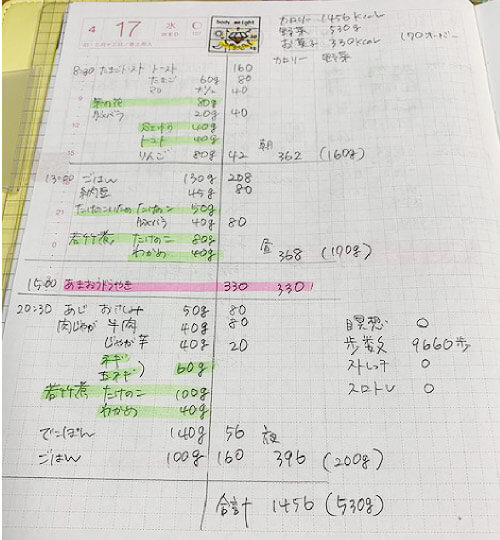 4 17 水
body weight
カロリー 1456 kcal
野菜 530g
お菓子 330kcal 170オーバー
カロリー 野菜
8:30 たまごトースト トースト 160
たまご 60g 80
40
菜の花 80g
豚バラ 20g 40
40g
トマト 40g
りんご 80g 42 朝 362 (160g)
13:00 ごはん 130g 208
納豆 45g 80
たけのこいため たけのこ 50g
豚バラ 40g 80
若竹煮 たけのこ 80g
わかめ 40g 昼 368 (170g)
15:00 あまおうどらやき 330 330
20:30 あじ おさしみ 50g 80
肉じゃが 牛肉 40g 80
じゃが芋 40g 20
ネギ
玉ネギ) 60g
若竹煮 たけのこ 100g
わかめ 40g
でこぽん 140g 56 夜
ごはん 100g 160 396 (200g)
合計 1456 (530g)
瞑想 ○
歩数 9660歩
ストレッチ ○
スロトレ ○